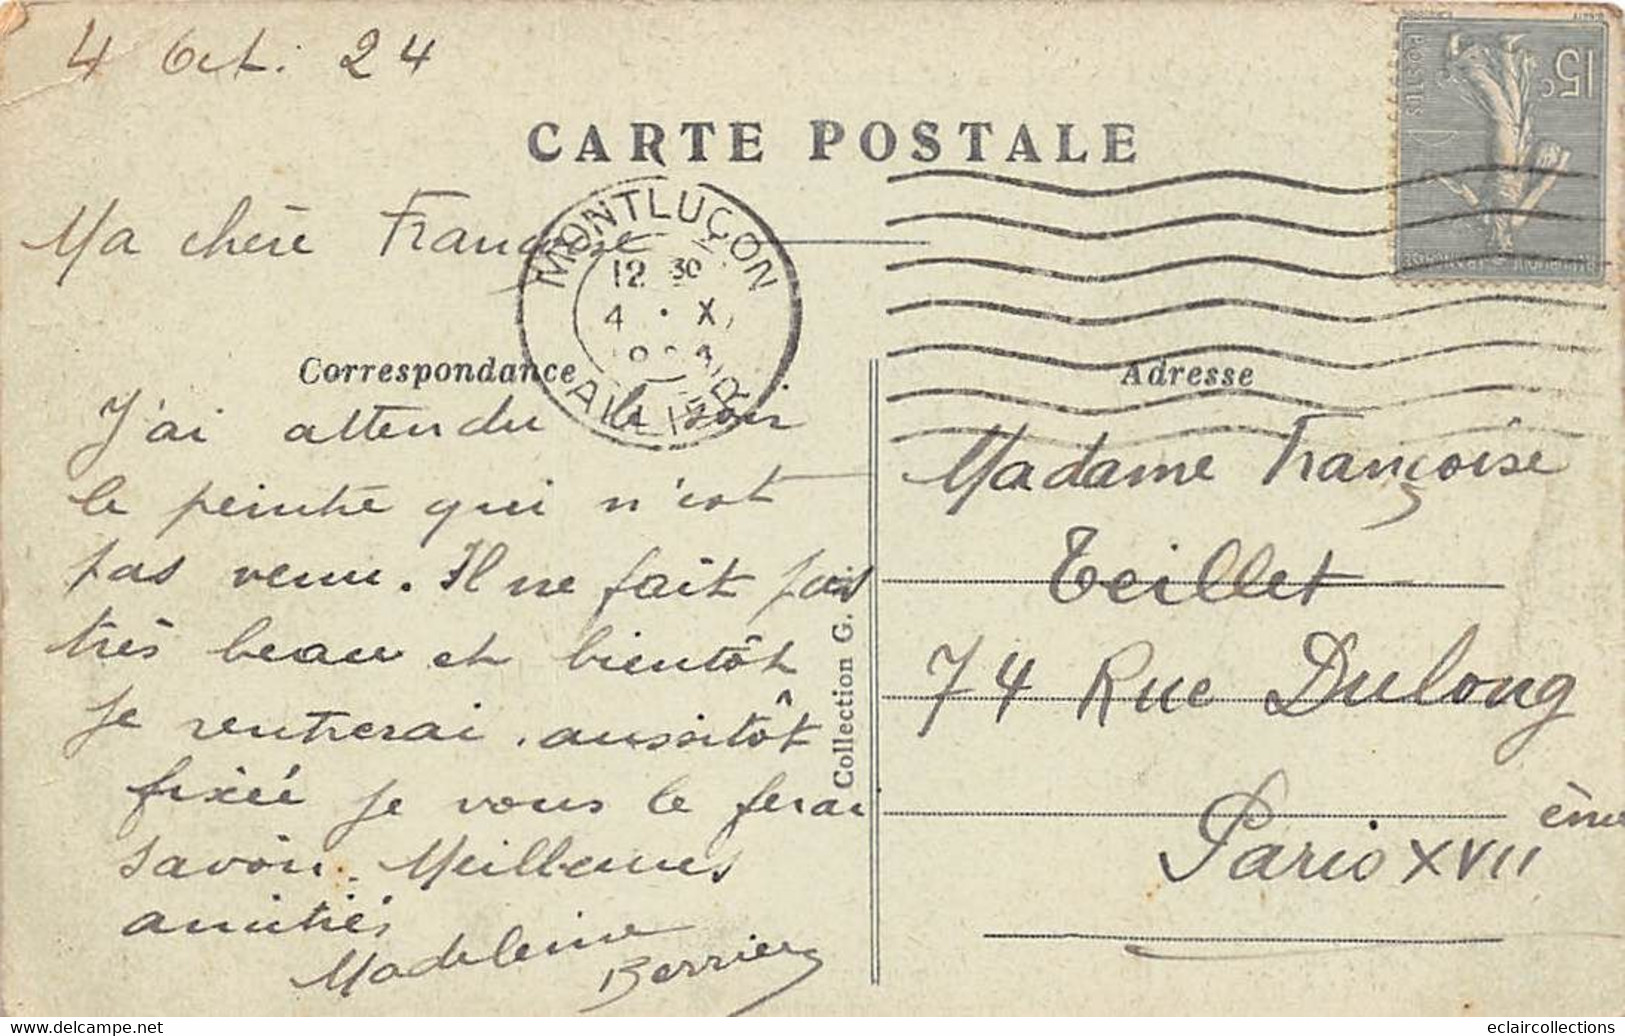 4 Oct. 24
15c
POSTES
CARTE POSTALE
Ma chère Françoise
MONTLUÇON
12 30
4 · X
ALLIER
Correspondance
J'ai attendu le soir
le peintre qui n'est
pas venu. Il ne fait pas
très beau et bientôt
je rentrerai. aussitôt
fixée je vous le ferai
savoir. Meilleures
amitiés
Madeleine
Berrier
Collection G.
Adresse
Madame Françoise
Teillet
74 Rue Dulong
Paris XVII ème
eclaircollections
www.delcampe.net